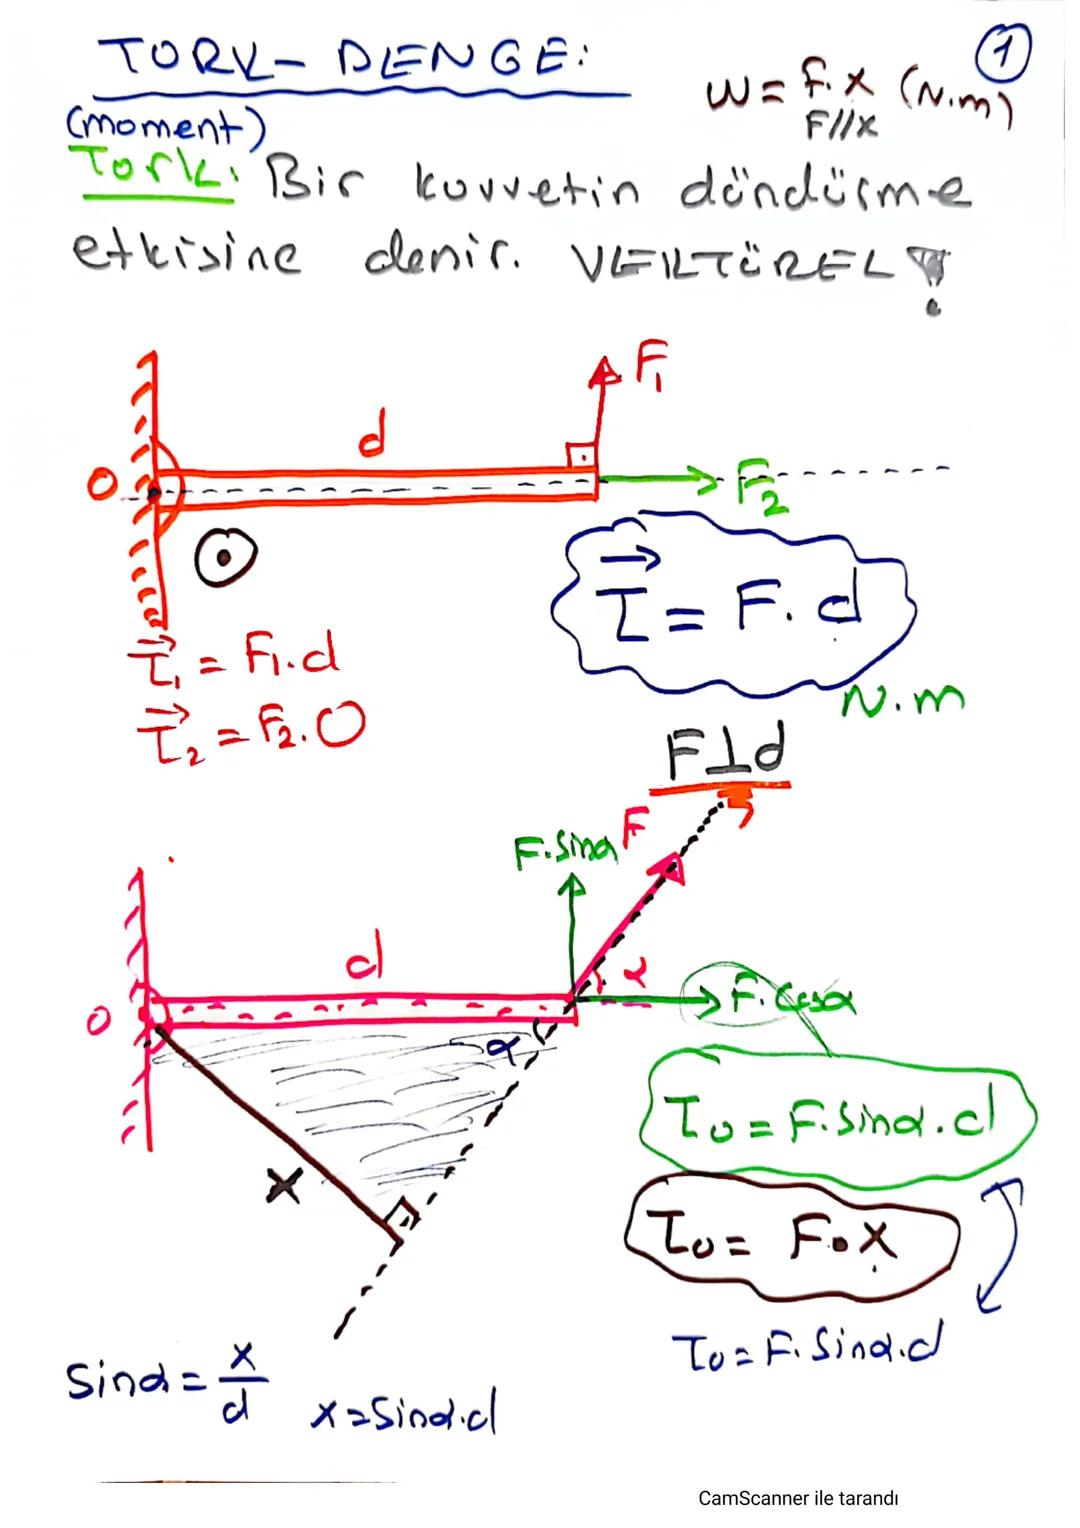 TORK- DENGE:
1
W = F.X (N.m)
F//X
(moment)
Tork: Bir kuvvetin döndürme
etkisine denir. VEKTÖREL!
F₁
d
O
F₂
τ⃗ = F.d
τ⃗₁ = F₁.d
N.m
τ⃗₂ = F₂.0
F⊥d
F
F.Sinα
d
α
O
F.Cosα
α
τ₀ = F.Sinα.d
X
τ₀ = F.X
τ₀ = F.Sinα.d
Sinα = X/d
X = Sinα.d
CamScanner ile tarandı